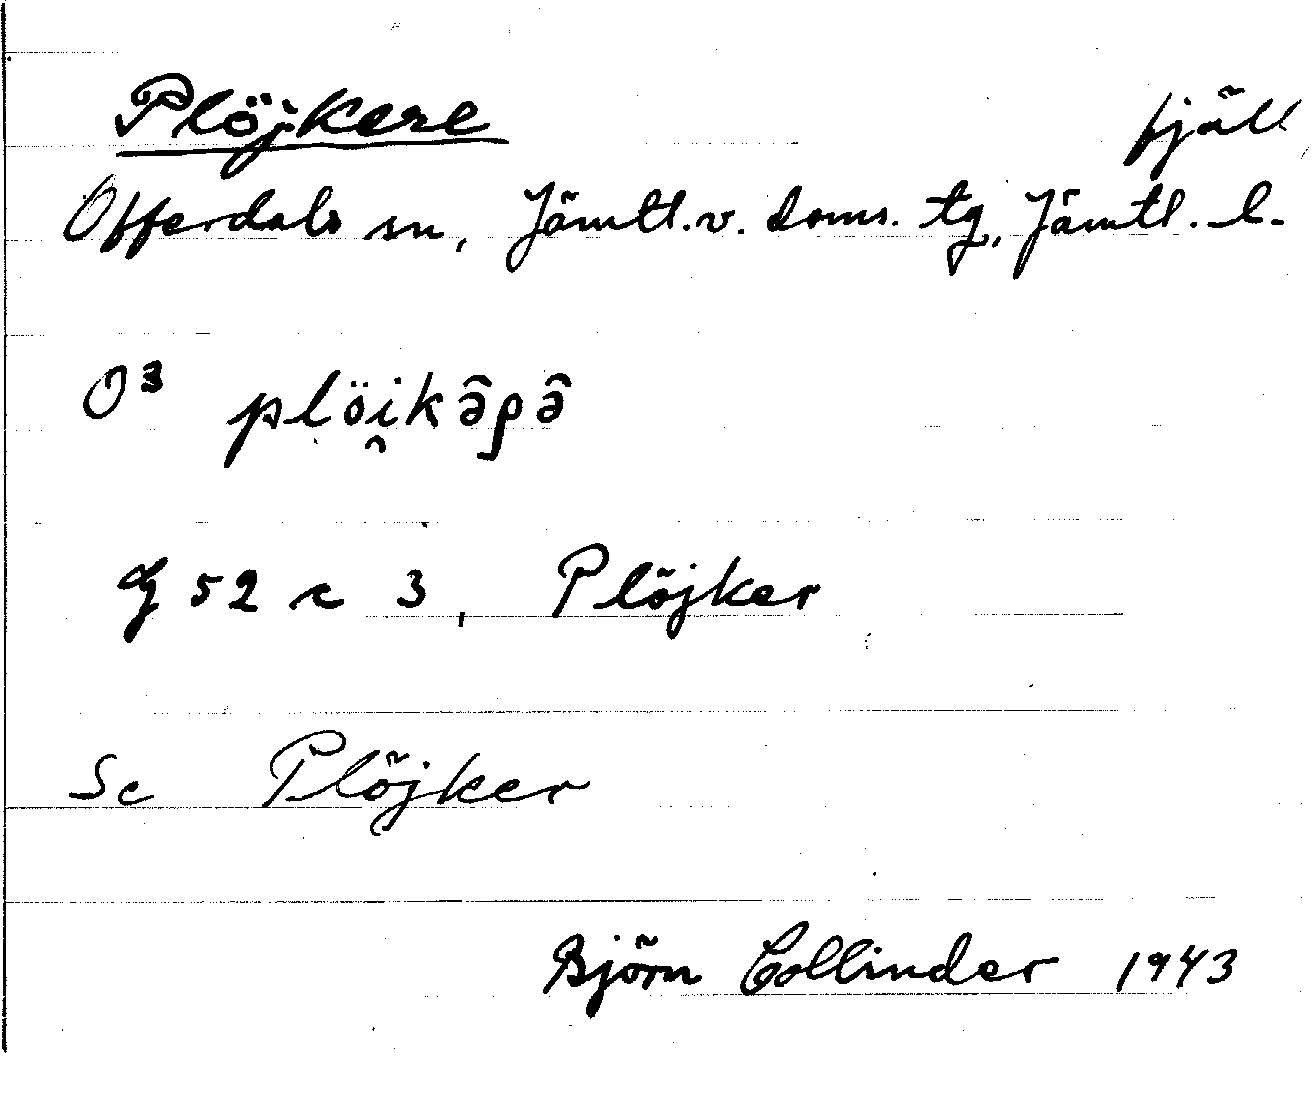 Plöjkere fjäll
Offerdals sn, Jämtl.v. doms. tg, Jämtl. l.
O³ plöi̯kə̂ρə̂
G 52 c 3, Plöjker
Sc Plöjker
Björn Collinder 1943